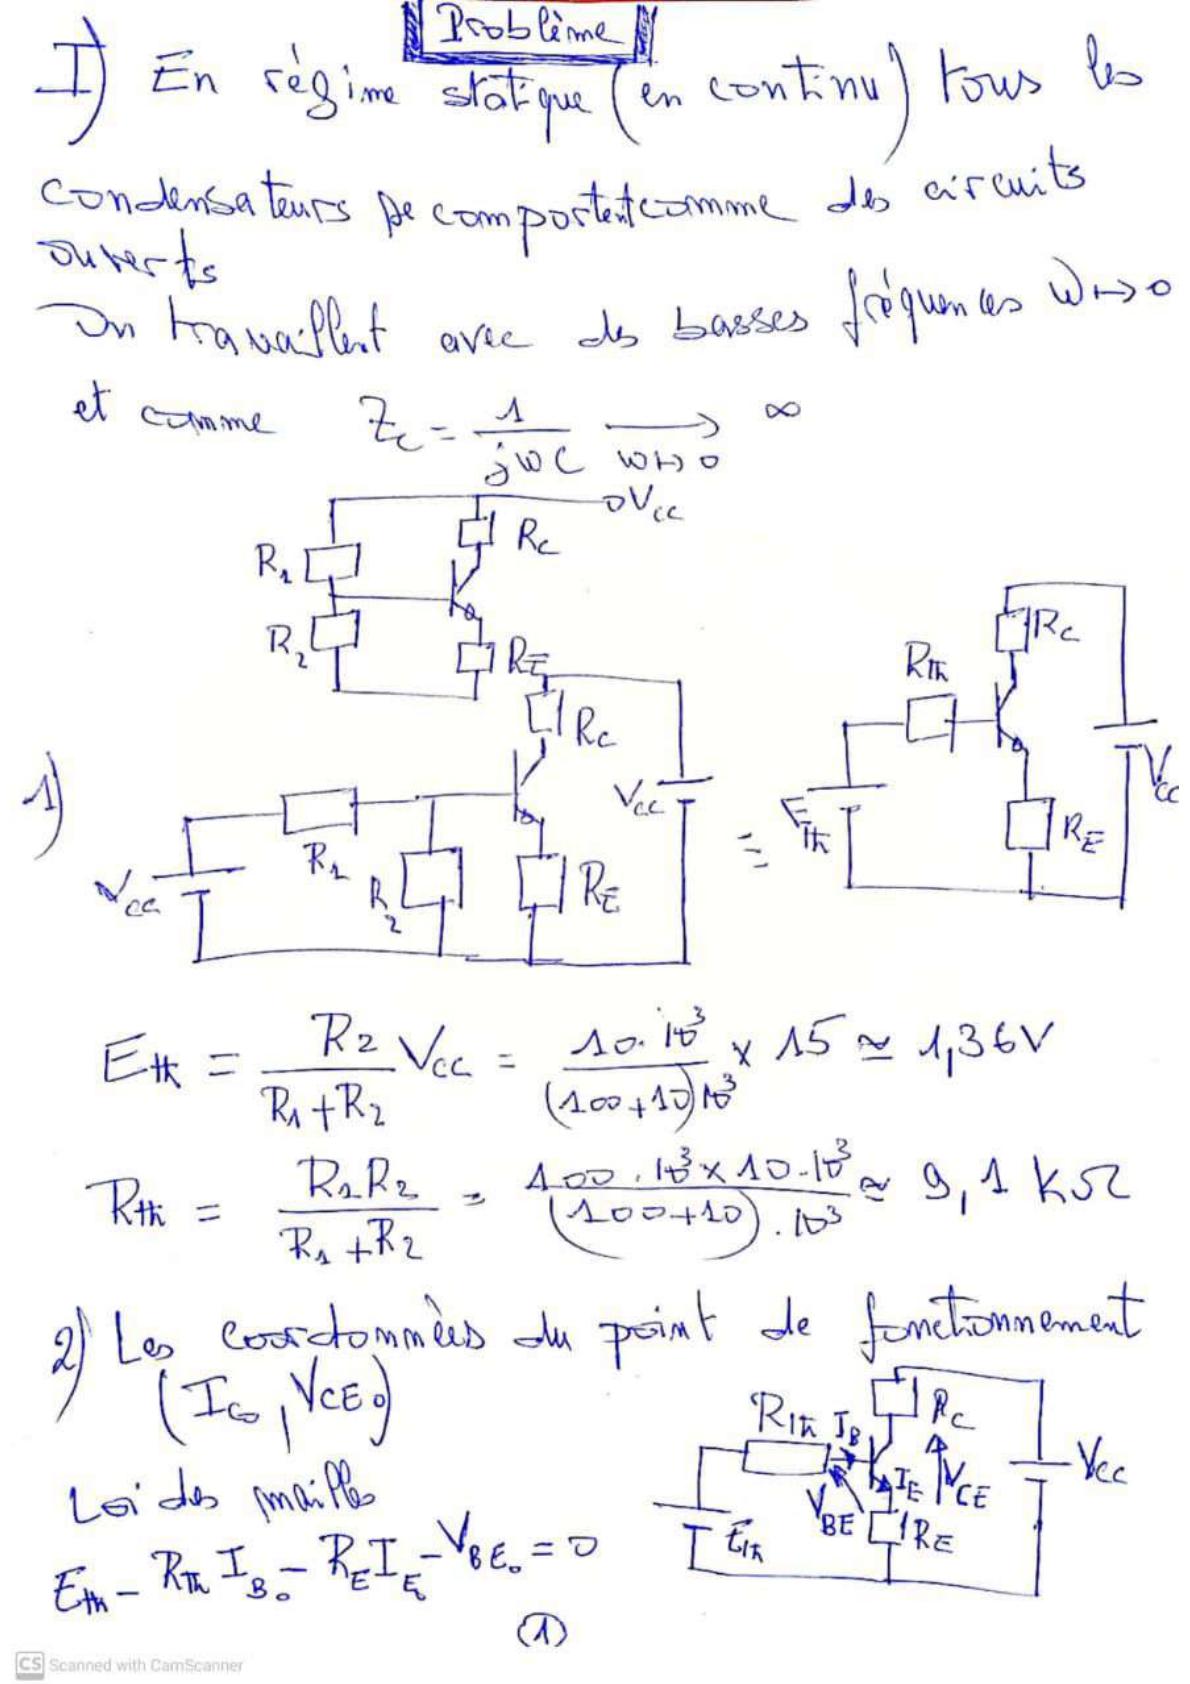 Problème
I) En régime statique (en continu) tous les
condensateurs se comportent comme des circuits
ouverts
On travaillent avec des basses fréquences ω↦0
et comme Z_C = 1/(jωC) → ∞
ω↦0
V_CC
R_C
R_1
R_2
R_E
1)
R_C
V_CC
R_1
R_2
R_E
V_CC
≡
R_C
R_th
E_th
R_E
V_CC
E_th = R_2/(R_1+R_2) V_CC = 10.10^3/((100+10)10^3) × 15 ≃ 1,36V
R_th = R_1R_2/(R_1+R_2) = 100.10^3×10.10^3/((100+10).10^3) ≃ 9,1 kΩ
2) Les coordonnées du point de fonctionnement
(I_C0, V_CE0)
R_th I_B R_C
V_BE I_E V_CE V_CC
E_th R_E
Loi des mailles
E_th - R_th I_B0 - R_E I_E0 - V_BE0 = 0
(1)
CS Scanned with CamScanner